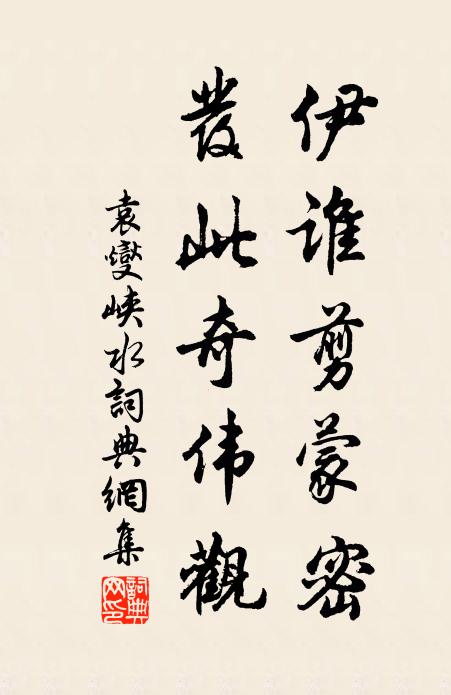 伊谁剪蒙密
发此奇伟观
袁燮峡水词典網集
詞典网印